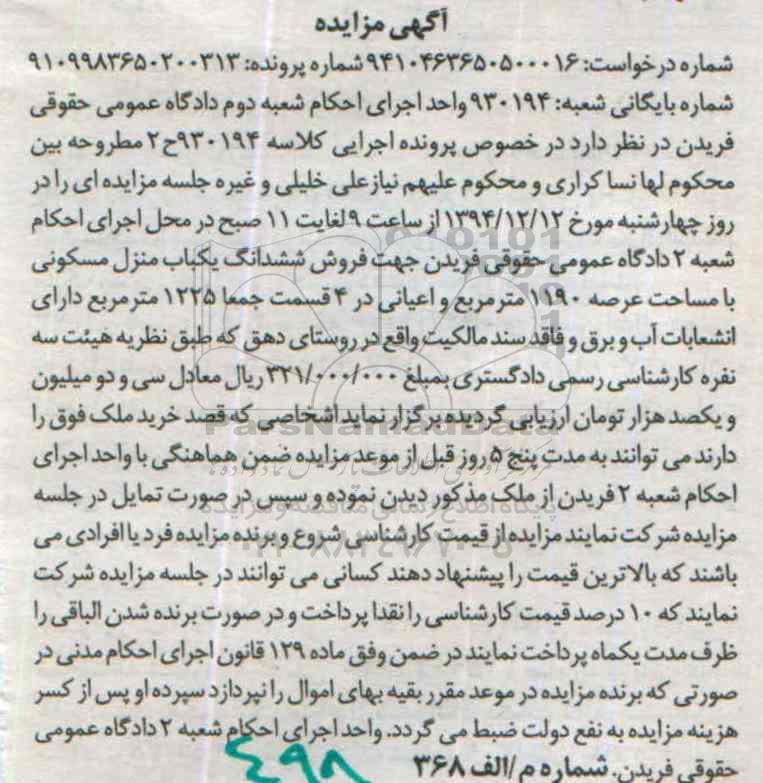 آگهی مزایده
شماره درخواست: ۹۴۱۰۴۶۳۶۵۰۵۰۰۰۱۶ شماره پرونده: ۹۱۰۹۹۸۳۶۵۰۲۰۰۳۱۳
شماره بایگانی شعبه: ۹۳۰۱۹۴ واحد اجرای احکام شعبه دوم دادگاه عمومی حقوقی
فریدن در نظر دارد در خصوص پرونده اجرایی کلاسه ۹۳۰۱۹۴ح۲ مطروحه بین
محکوم لها نسا کراری و محکوم علیهم نیازعلی خلیلی و غیره جلسه مزایده ای را در
روز چهارشنبه مورخ ۱۳۹۴/۱۲/۱۲ از ساعت ۹ لغایت ۱۱ صبح در محل اجرای احکام
شعبه ۲ دادگاه عمومی حقوقی فریدن جهت فروش ششدانگ یکباب منزل مسکونی
با مساحت عرصه ۱۱۹۰ متر مربع و اعیانی در ۴ قسمت جمعا ۱۲۲۵ متر مربع دارای
انشعابات آب و برق و فاقد سند مالکیت واقع در روستای دهق که طبق نظریه هیئت سه
نفره کارشناسی رسمی دادگستری بمبلغ ۳۲۱/۰۰۰/۰۰۰ ریال معادل سی و دو میلیون
و یکصد هزار تومان ارزیابی گردیده برگزار نماید اشخاصی که قصد خرید ملک فوق را
دارند می توانند به مدت پنج ۵ روز قبل از موعد مزایده ضمن هماهنگی با واحد اجرای
احکام شعبه ۲ فریدن از ملک مذکور دیدن نموده و سپس در صورت تمایل در جلسه
مزایده شرکت نمایند مزایده از قیمت کارشناسی شروع و برنده مزایده فرد یا افرادی می
باشند که بالاترین قیمت را پیشنهاد دهند کسانی می توانند در جلسه مزایده شرکت
نمایند که ۱۰ درصد قیمت کارشناسی را نقدا پرداخت و در صورت برنده شدن الباقی را
ظرف مدت یکماه پرداخت نمایند در ضمن وفق ماده ۱۲۹ قانون اجرای احکام مدنی در
صورتی که برنده مزایده در موعد مقرر بقیه بهای اموال را نپردازد سپرده او پس از کسر
هزینه مزایده به نفع دولت ضبط می گردد. واحد اجرای احکام شعبه ۲ دادگاه عمومی
حقوقی فریدن. شماره م/الف ۳۶۸
۴۹۸
ParsNamadData